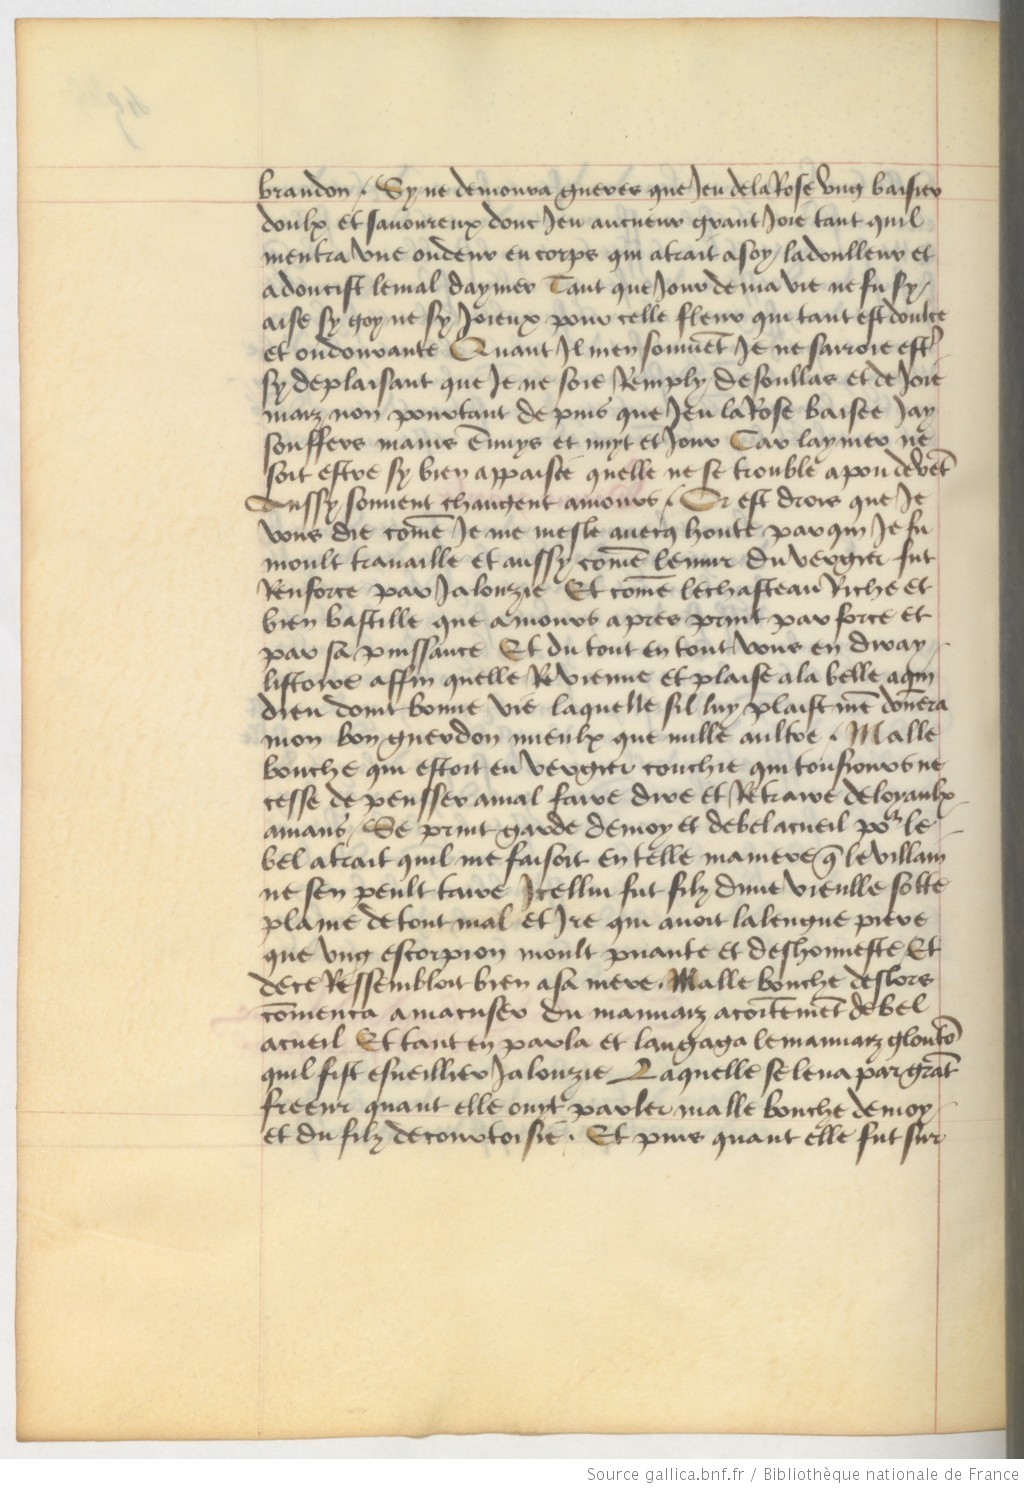 brandon . Sy ne demoura gueres que Jeu dela Rose vng baisier
doulx et sauoureux donc Jeu aucueur grant Joie tant quil
mentra vne oudeur en corps qui atrait asoy / ladoulleur et
adoucist lemal daymer Tant que Jour dema vie ne fu sy /
aise sy goy ne sy Joieux pour celle fleur qui tant est doulce
et oudourante Quant Il men souuiet Je ne sarroie estr
sy deplaisant que Je ne soie Remply desoullas et de Joie
marz non pourtant de puis que Jeu la Rose baisee Jay
souffers mains Ennuys et nuyt et Jour Car laymer ne
soit estre sy bien appaisee quelle ne se trouble apou devet
Aussy souuent changent amours . Or est drois que Je
vous die come Je me mesle auecq honte par qui Je fu
moult trauaille et aussy come lemur du vergier fut
Renforce par Jalouzie Et come lechasteau Riche et
bien bastille que amours apres print par force et
par sa puissance Et du tout en tout vous en diray
listoire affin quelle Revienne et plaise ala belle aqui
dieu doint bonne vie laquelle sil luy plaist men donera
mon bon guerdon mieulx que nulle aultre . Malle
bouche qui estoit en vergier couchie qui tousiours ne
cesse de pensser amal faire dire et Retraire deloyaulx
amans / Se print garde demoy et debel acueil por le
bel atrait quil me faisoit en telle maniere q le villain
ne sen peult taire Icellui fut filz dune vieulle sotte
plaine de tout mal et Ire qui auoit lalengue piere
que vng escorpion moult puante et deshonneste Et
dece Ressembloit bien asa mere . Malle bouche deslors
comenca amacuser du mauuarz acortement de bel
acueil Et tant en parla et langaga lemauuarz glouto
quil fist esueillier Jalouzie Laquelle seleua par grat
freeur quant elle ouyt parler malle bouche demoy
et du filz decourtoisie . Et puis quant elle fut sur
Source gallica.bnf.fr / Bibliothèque nationale de France